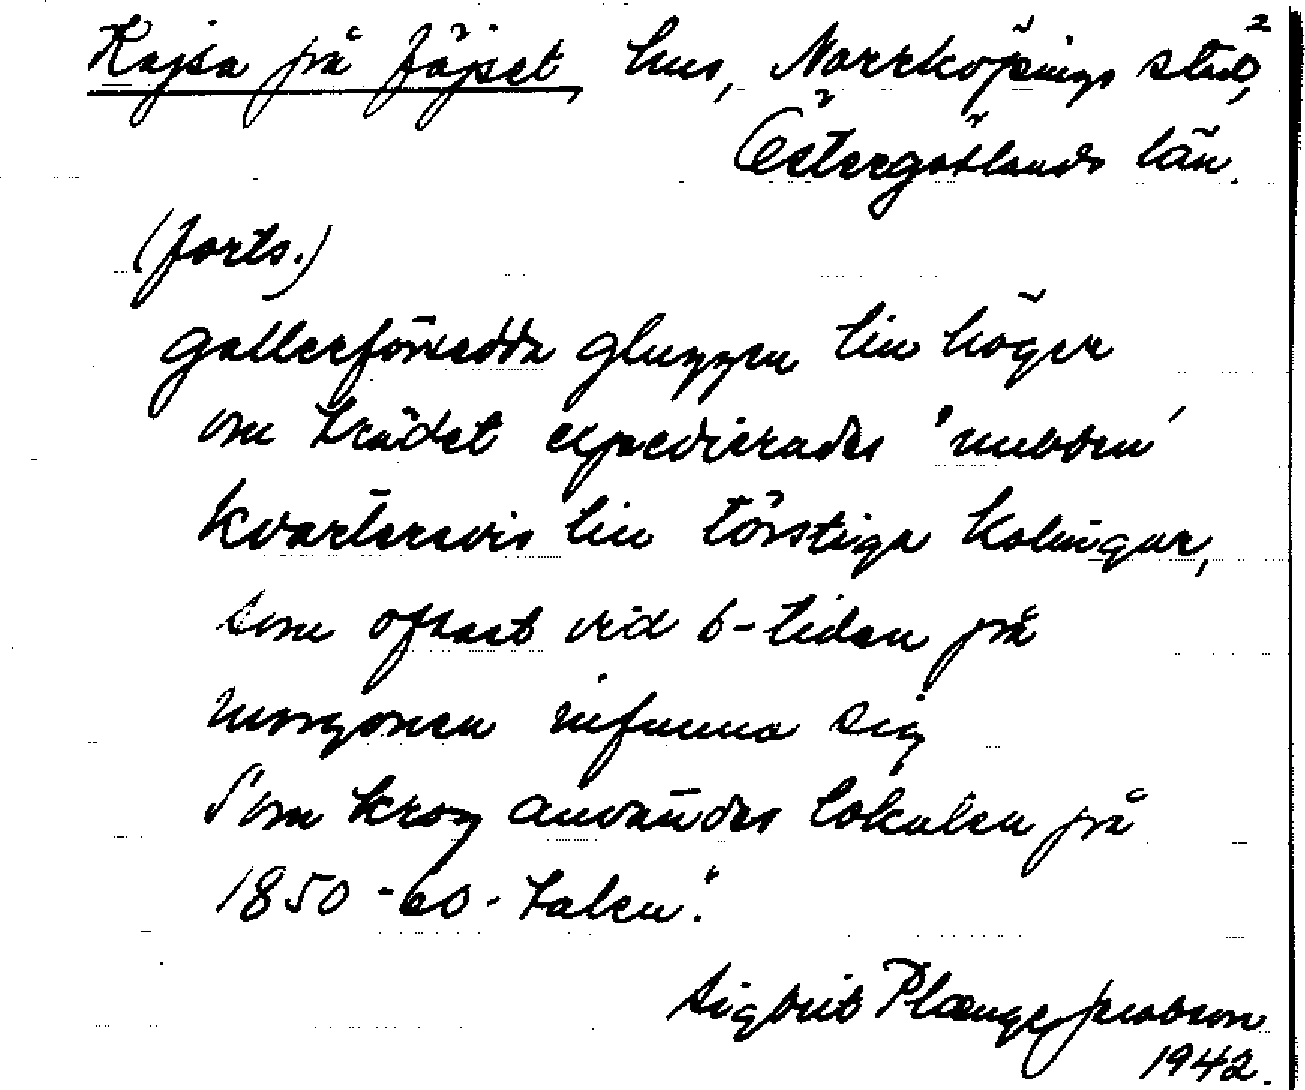 Kajsa på föjset hus, Norrköpings stad, 2
Östergötlands län.
(forts.)
gallerförsedda gluggen till höger
om trädet expedierades "nubben"
kvartersvis till törstiga kolingar,
som oftast vid 6-tiden på
morgonen infunno sig
Som krog användes lokalen på
1850-60-talen."
Sigbrit Plænge Jacobson
1942.